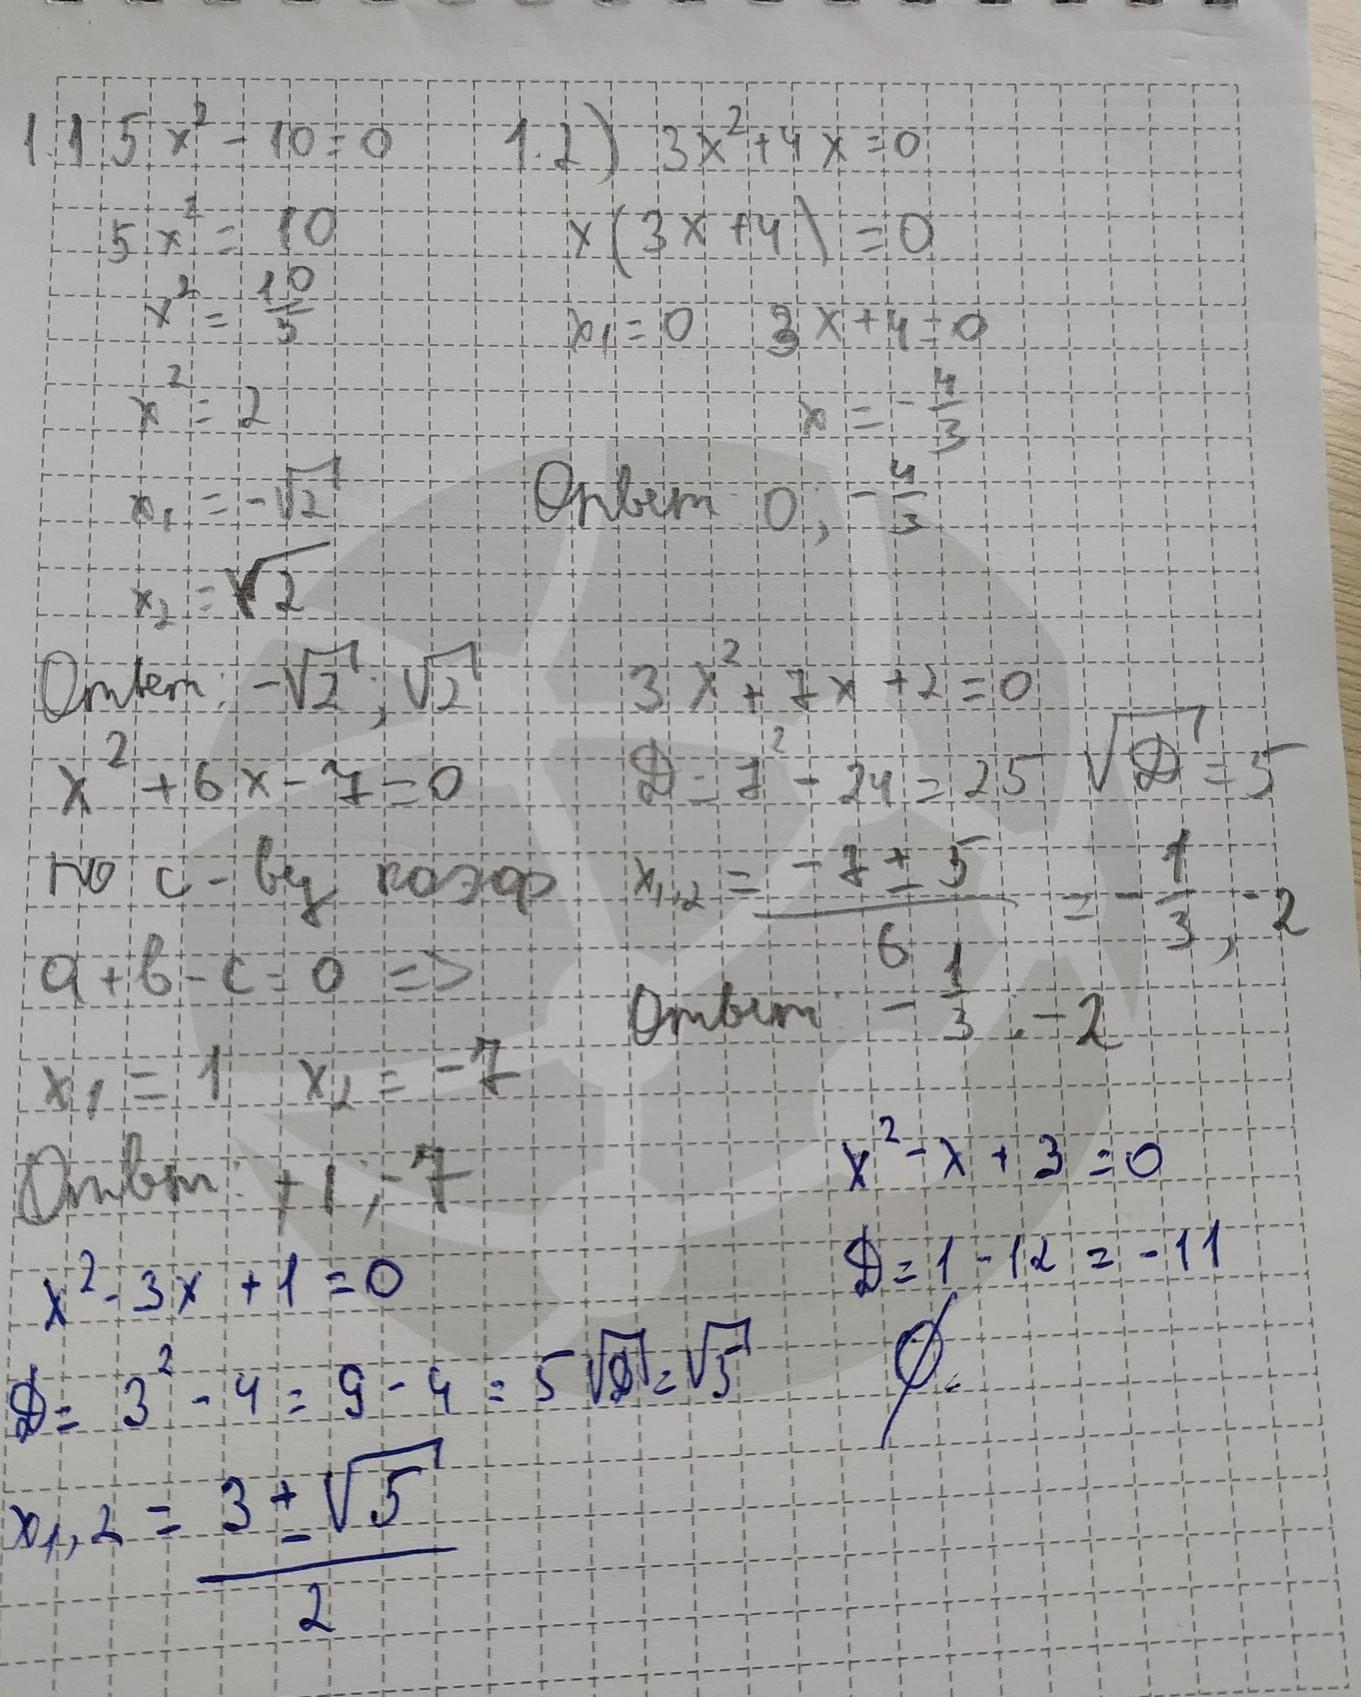 1.1 5x² - 10 = 0
5x² = 10
x² = 10/5
x² = 2
x₁ = -√2
x₂ = √2
Ответ: -√2; √2
1.2) 3x² + 4x = 0
x(3x + 4) = 0
x₁ = 0 3x + 4 = 0
x = -4/3
Ответ: 0; -4/3
x² + 6x - 7 = 0
по с-ву коэф
a + b - c = 0 =>
x₁ = 1 x₂ = -7
Ответ: +1; -7
3x² + 7x + 2 = 0
D = 7² - 24 = 25 √D = 5
x₁,₂ = (-7 ± 5)/6 = -1/3, -2
Ответ: -1/3; -2
x² - 3x + 1 = 0
D = 3² - 4 = 9 - 4 = 5 √D = √5
x₁,₂ = (3 ± √5)/2
x² - x + 3 = 0
D = 1 - 12 = -11
∅.